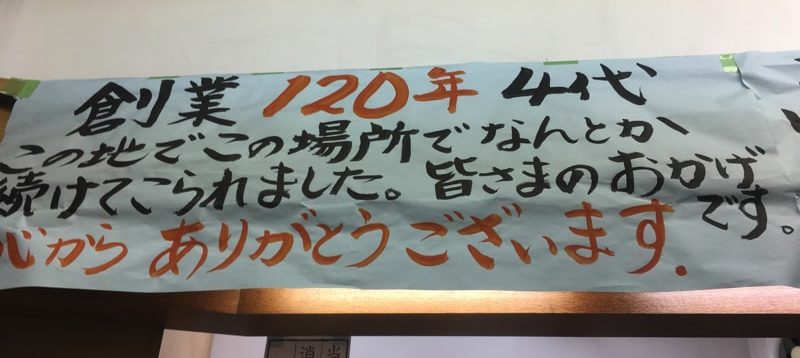 創業120年 4代
この地でこの場所でなんとか
続けてこられました。皆さまのおかげ
です。
心からありがとうございます.
消 当